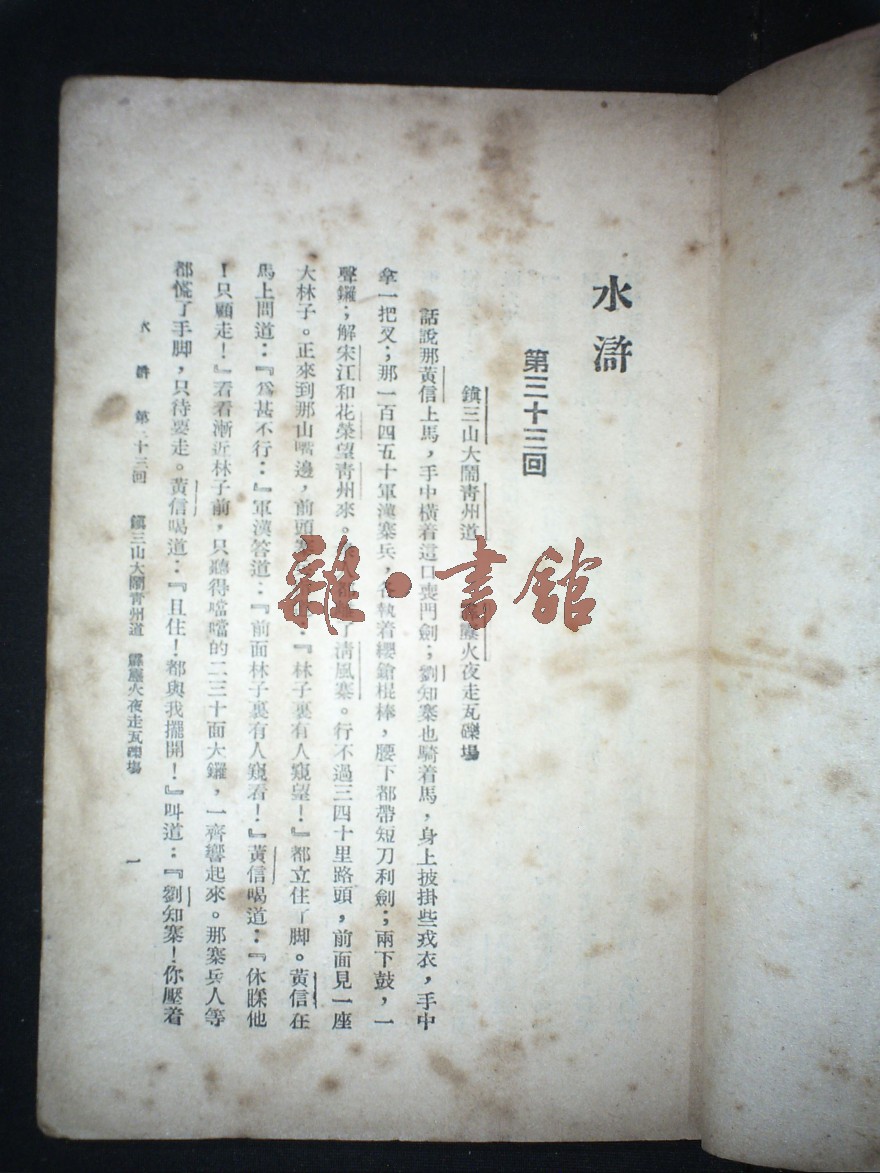 水滸
第三十三回
鎮三山大鬧青州道 霹靂火夜走瓦礫場
話說那黃信上馬，手中橫着這口喪門劍；劉知寨也騎着馬，身上披掛些戎衣，手中
拿一把叉；那一百四五十軍漢寨兵，各執着纓鎗棍棒，腰下都帶短刀利劍；兩下鼓，一
聲鑼；解宋江和花榮望青州來。了清風寨。行不過三四十里路頭，前面見一座
大林子。正來到那山嘴邊，前頭『林子裏有人窺望！』都立住了脚。黃信在
馬上問道：『爲甚不行：』軍漢答道：『前面林子裏有人窺看！』黃信喝道：『休睬他
！只顧走！』看看漸近林子前，只聽得噹噹的二三十面大鑼，一齊響起來。那寨兵人等
都慌了手脚，只待要走。黃信喝道：『且住！都與我擺開！』叫道：『劉知寨！你壓着
水滸 第三十三回 鎮三山大鬧青州道 霹靂火夜走瓦礫場 一
雜·書館